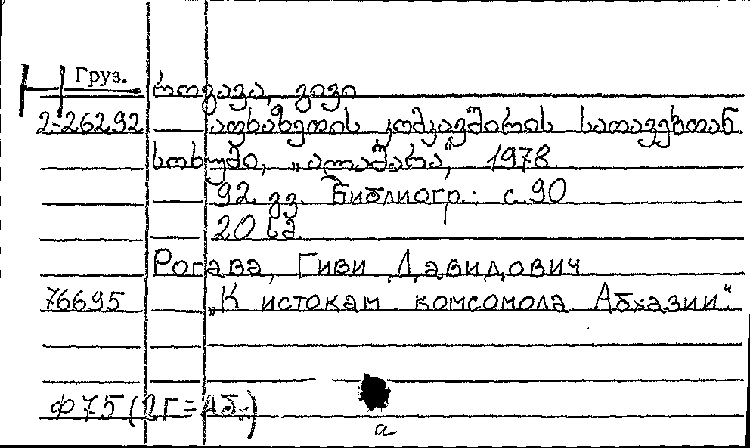 Груз.
როგავა, გივი
2-26292 აფხაზეთის კომკავშირის სათავეებთან
სოხუმი, „ალაშარა“, 1978
92 გვ. Библиогр.: с. 90
20 სმ
Рогава, Гиви Давидович
76695 „К истокам комсомола Абхазии“
Ф75(2Г=Аб.)
а